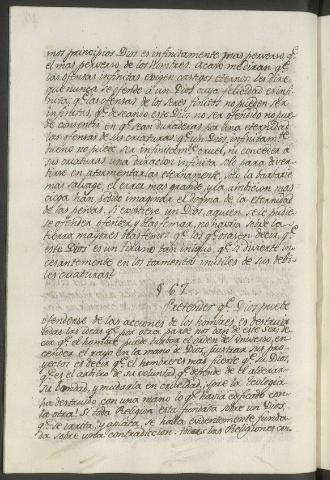 mos principios Dios es infinitamente mas perverso q.e
el mas perverso de los Hombres. Acaso me diran q.e
las ofensas infinitas exigen castigos eternos. Les dire
que nunca se ofende à un Dios cuya felicidad es infi-
nita; q.e las ofensas de los seres finitos no pueden ser
infinitas; q.e exesando este Dios no ser ofendido no pue-
de consentir en q.e sean duraderas por una eternidad
las ofensas de sus criaturas: q.e un Dios infinitam.te
bueno no puede ser infinitam.te cruel, ni conceder à
sus criaturas una duracion infinita, solo para diver-
tirse en atormentarlas eternamente; solo la barbarie
mas salvage, el error mas grande, y la ambicion mas
ciega han podido imaginar el dogma de la eternidad
de las penas. Si existiese un Dios, aquien se le pudie-
se ofender, y blasfemar, no havria sobre la
tierra mayores blasfemos q.e los q.e osasen decir, q.e
este Dios es un tirano tan iniquo, q.e se divierte in-
cesantemente en los tormentos inutiles de sus debi-
les criaturas.
§ 67.
Pretender q.e Dios puede
ofenderse de las acciones de los hombres, es destruir
todas las ideas q.e por otra parte nos dan de este ser; de-
cir q.e el hombre puede turbar el orden del Universo, en-
cender el rayo en la mano de Dios, frustrar sus pro-
yectos es decir q.e el hombre es mas fuerte q.e su Dios,
q.e es el arbitro de su voluntad, q.e depende de el alterar
su bondad, y mudarla en crueldad; q.e la Teologia
ha destruido con una mano lo q.e havia edificado con
la otra: Si toda Religion esta fundada sobre un Dios,
q.e se irrita, y aplaca, se halla evidentemente funda-
da sobre una contradiccion. Todas las Religiones con